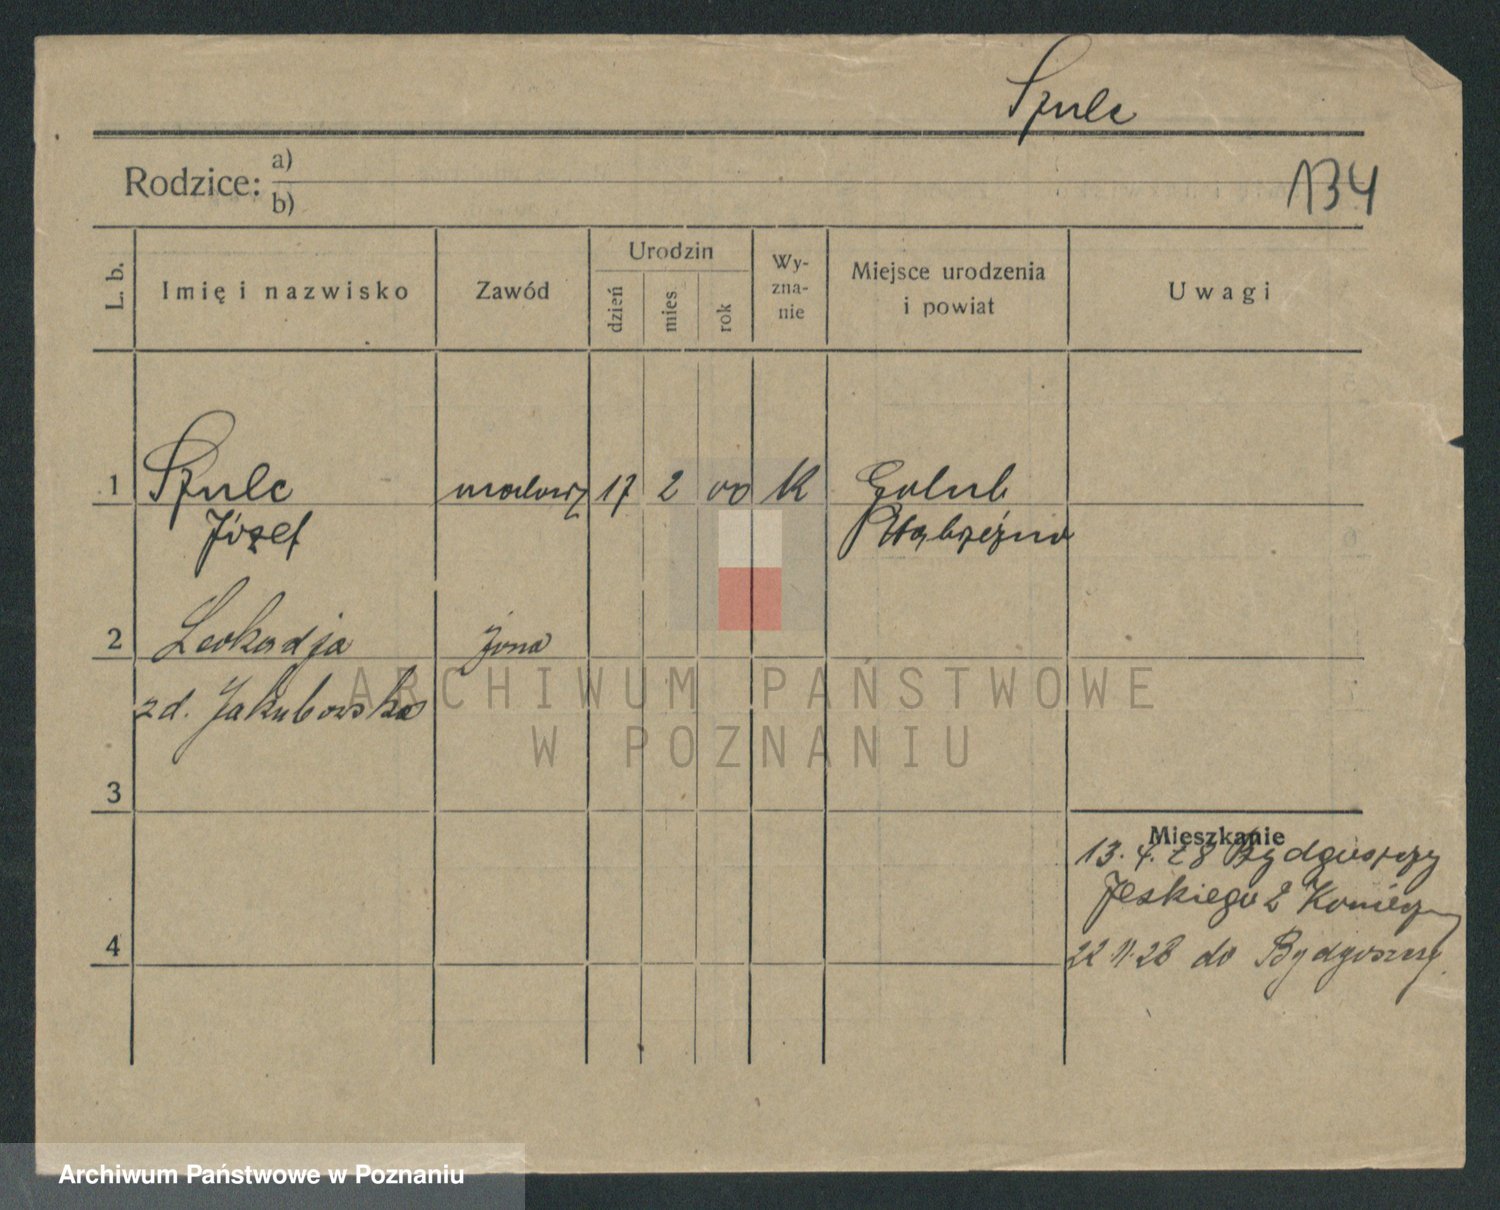 Szulc
134
Rodzice: a)
b)
L. b. Imię i nazwisko Zawód Urodzin dzień mies rok Wy-zna-nie Miejsce urodzenia i powiat Uwagi
1 Szulc 17 2 00 K Golub
Józef Wąbrzeźno
2 Leokadja żona
zd. Jakubowska
3
ARCHIWUM PAŃSTWOWE
W POZNANIU
Mieszkanie
13.4.28 Bydgoszczy
Jeskiego 2
4
22 11.28 do Bydgoszczy.
Archiwum Państwowe w Poznaniu